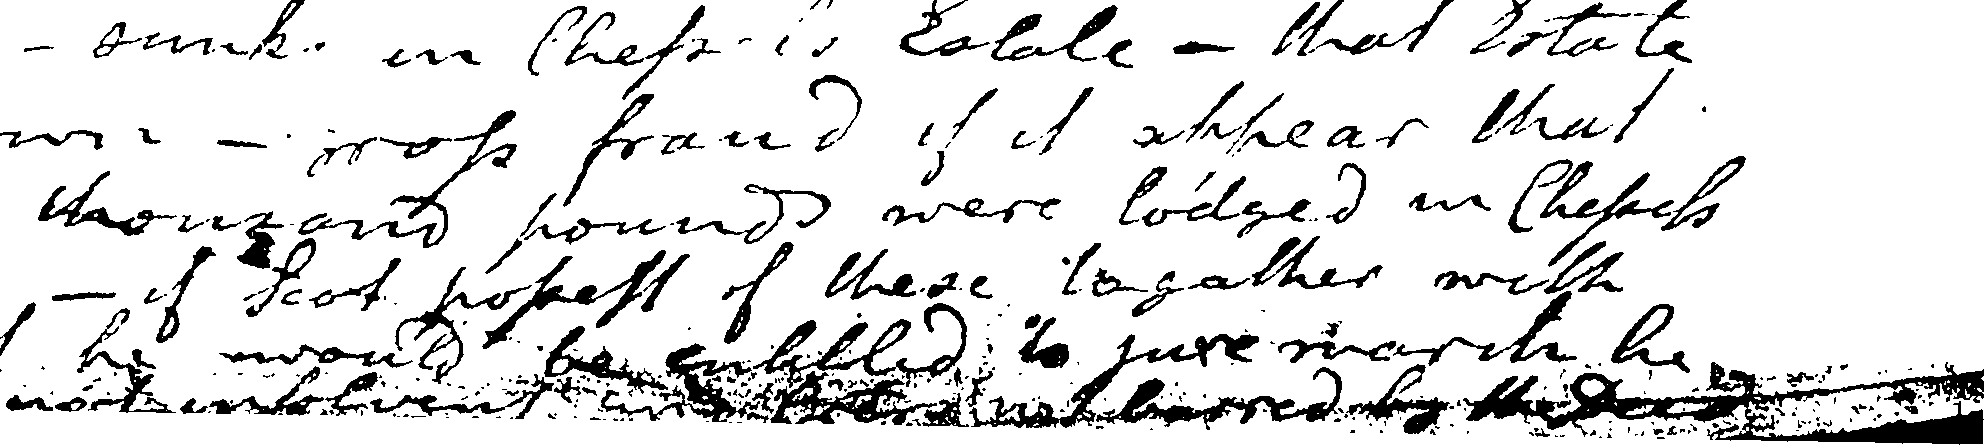 - sunk. in Chess's Estate - that Estate
- gross fraud if it appear that
thousand pounds were lodged in Chesses
- if Scot possesst of these together with
he would be entitled to
not insolvent and not barred by the Deed